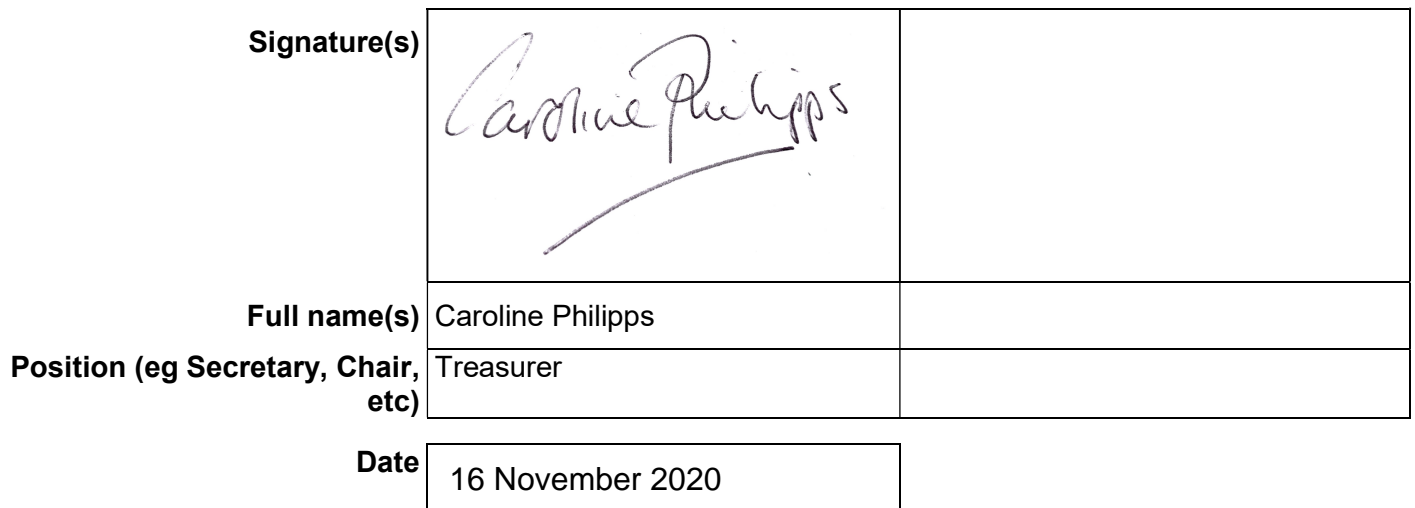 Signature(s)
Caroline Philipps
Full name(s) Caroline Philipps
Position (eg Secretary, Chair, Treasurer
etc)
Date
16 November 2020